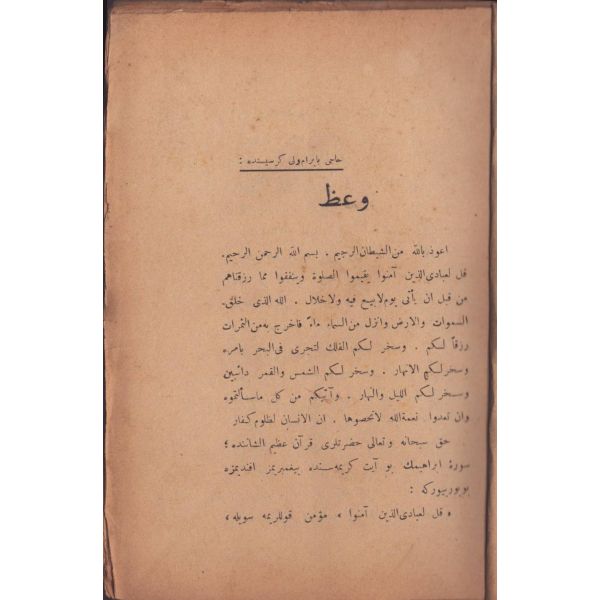 حاجی بایرام ولی كرسیسنده :
وعظ
اعوذ بالله من الشیطان الرجیم . بسم الله الرحمن الرحیم .
قل لعبادی الذین آمنوا یقیموا الصلوة وینفقوا مما رزقناهم
من قبل ان یأتی یوم لابیع فیه ولاخلال . الله الذی خلق
السموات والارض وانزل من السماء ماءً فاخرج به من الثمرات
رزقاً لكم . وسخر لكم الفلك لتجری فی البحر بامره
وسخر لكم الانهار . وسخر لكم الشمس والقمر دائبین
وسخر لكم اللیل والنهار . وآتیكم من كل ماسألتموه
وان تعدوا نعمة الله لاتحصوها . ان الانسان لظلوم كفار
حق سبحانه وتعالی حضرتلری قرآن عظیم الشاننده ؛
سورهٔ ابراهیمك بو آیت كریمه سنده پیغمبریمز افندیمزه
بویوریوركه :
« قل لعبادی الذین آمنوا » مؤمن قوللریمه سویله ،